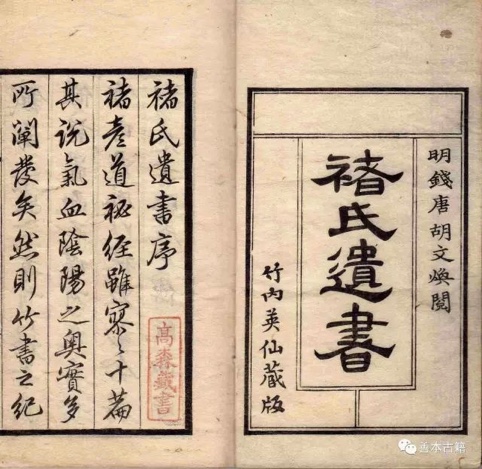 明錢唐胡文煥閱
褚氏遺書
竹内英仙蔵版
褚氏遺書序
褚彥道秘經雖寥〻十篇
其説氣血陰陽之奥實多
所闡發矣然則竹書之紀
高森蔵書
善本古籍